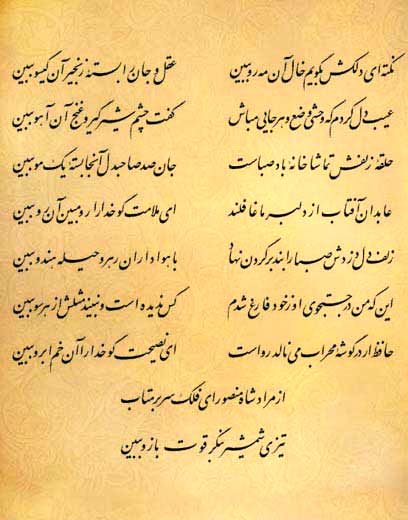 نکته‌ای دلکش بگویم خال آن مه رو ببین عقل و جان را بستهٔ زنجیر آن گیسو ببین
عیب دل کردم که وحشی وضع و هرجایی مباش گفت چشم شیرگیر و غنج آن آهو ببین
حلقه زلفش تماشاخانه باد صباست جان صد صاحبدل آنجا بسته یک مو ببین
عابدان آفتاب از دلبر ما غافلند ای ملامت گو خدا را رو مبین آن رو ببین
زلف دل دزدش صبا را بند بر گردن نهاد با هواداران رهرو حیله هندو ببین
این که من در جستجوی او ز خود فارغ شدم کس ندیده است و نبیند مثلش از هر سو ببین
حافظ ار در گوشه محراب می نالد رواست ای نصیحت گو خدا را آن خم ابرو ببین
از مراد شاه منصور ای فلک سر بر متاب
تیزی شمشیر بنگر قوت بازو ببین